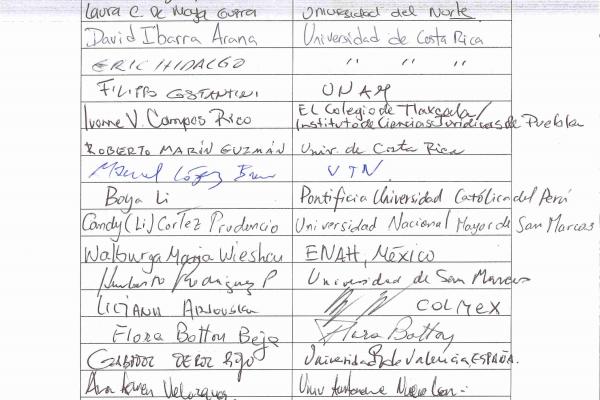 Laura C. De Moya Guerra Universidad del Norte
David Ibarra Arana Universidad de Costa Rica
ERIC HIDALGO " " "
FILIPPO COSTANTINI UNAM
Ivonne V. Campos Rico El Colegio de Tlaxcala/
Instituto de Ciencias Jurídicas de Puebla
ROBERTO MARÍN GUZMÁN Univ. de Costa Rica
Manuel López UTN
Boya Li Pontificia Universidad Católica del Perú
Candy (Li) Cortez Prudencio Universidad Nacional Mayor de San Marcos
Walburga María Wiesheu ENAH, MÉXICO
Humberto Rodríguez P Universidad de San Marcos
LILJANA COLMEX
Flora Botton Beja Flora Botton
Universidad de Valencia, ESPAÑA.
Velazquez Univ Autonoma Nuevo Leon